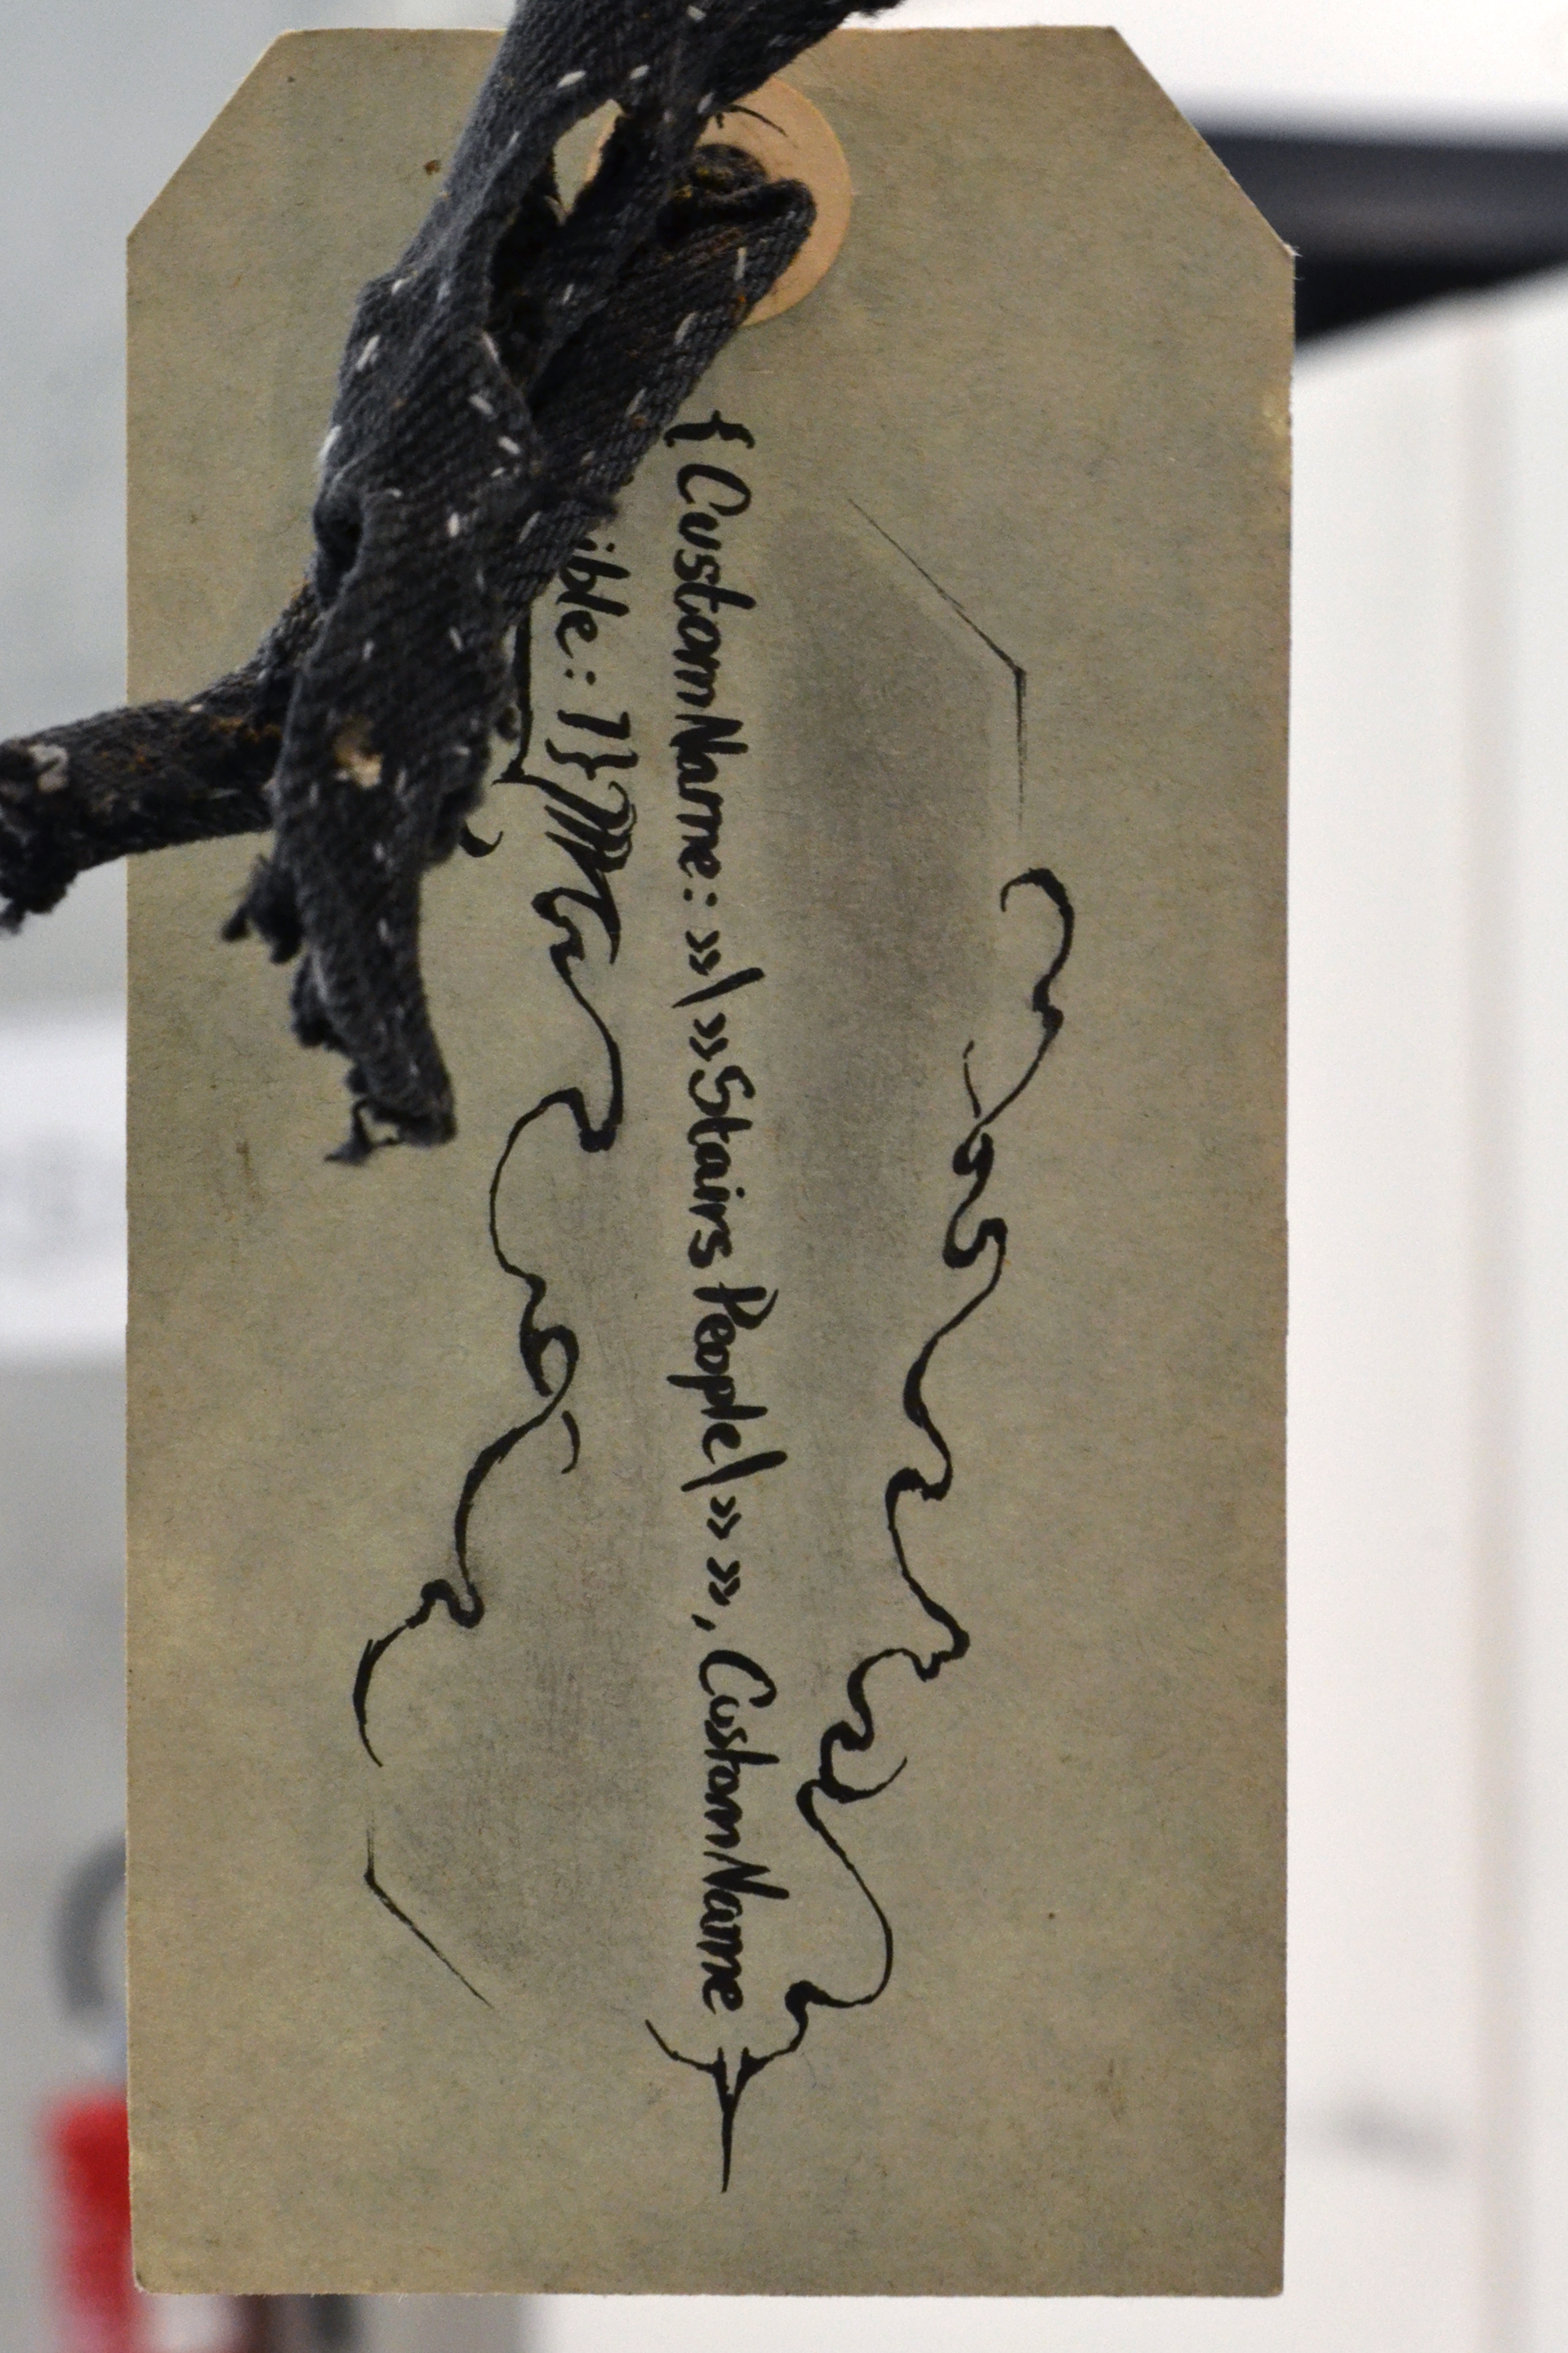 {CustomName: »\»Stairs People\»», CustomName
ible: 1}